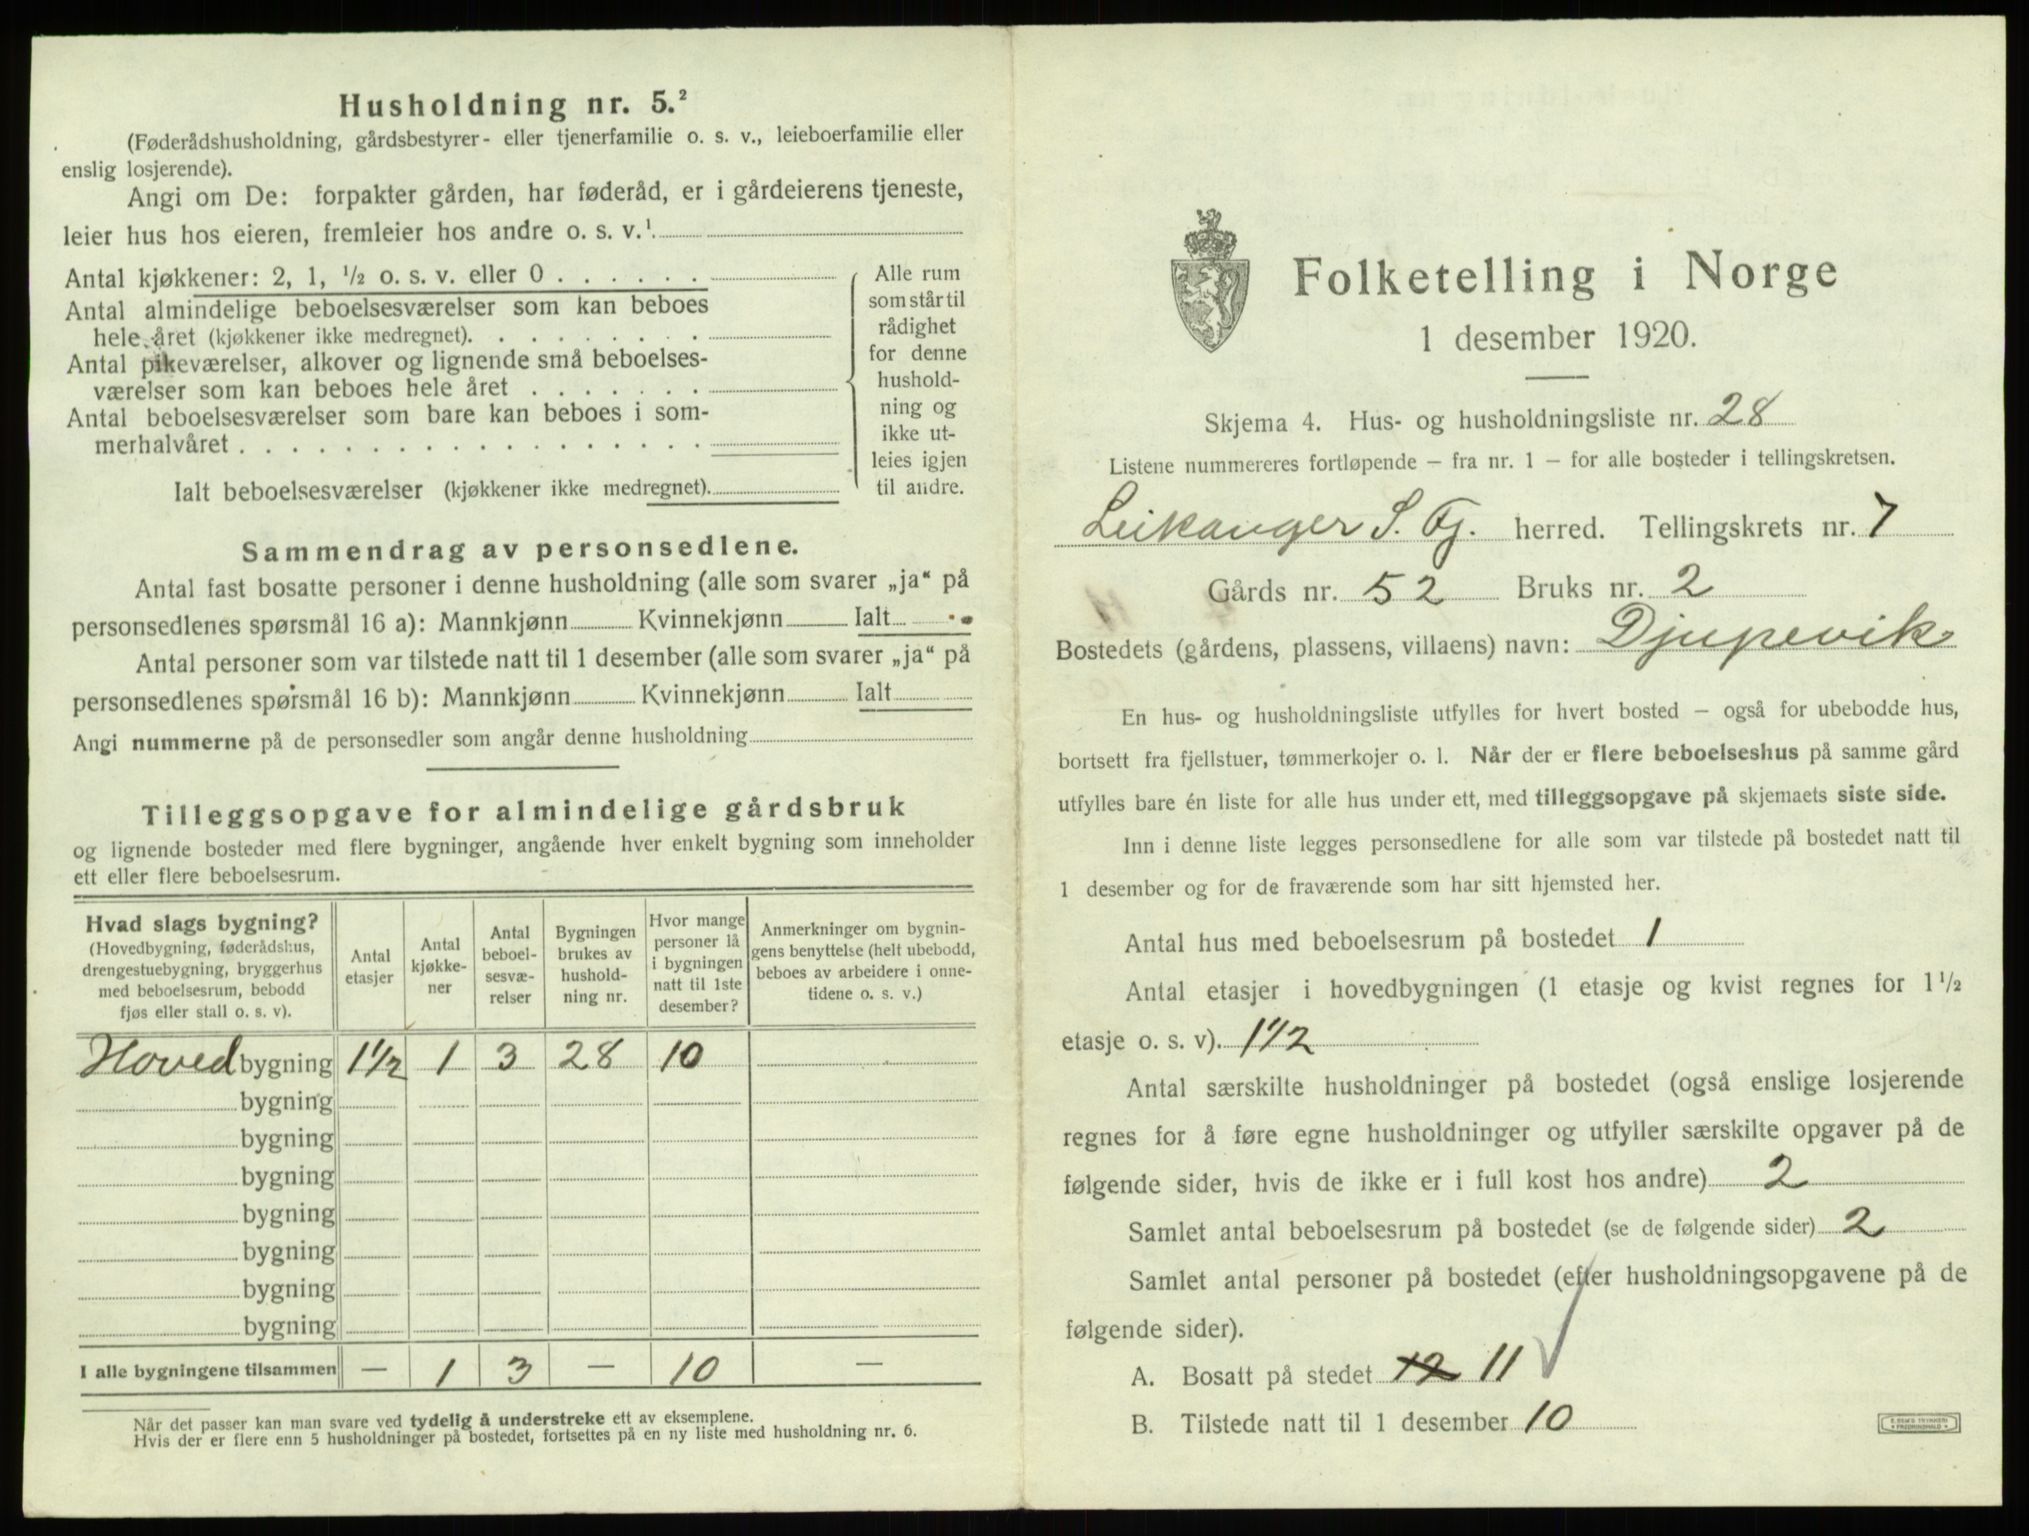 Husholdning nr. 5.²
(Føderådshusholdning, gårdsbestyrer- eller tjenerfamilie o. s. v., leieboerfamilie eller
enslig losjerende).
Angi om De: forpakter gården, har føderåd, er i gårdeierens tjeneste,
leier hus hos eieren, fremleier hos andre o. s. v.¹
Antal kjøkkener: 2, 1, ½ o. s. v. eller 0
Antal almindelige beboelsesværelser som kan beboes
hele året (kjøkkener ikke medregnet).
Antal pikeværelser, alkover og lignende små beboelses-
værelser som kan beboes hele året
Antal beboelsesværelser som bare kan beboes i som-
merhalvåret
Ialt beboelsesværelser (kjøkkener ikke medregnet).
Alle rum
som står til
rådighet
for denne
hushold-
ning og
ikke ut-
leies igjen
til andre.
Sammendrag av personsedlene.
Antal fast bosatte personer i denne husholdning (alle som svarer „ja“ på
personsedlenes spørsmål 16 a): Mannkjønn Kvinnekjønn Ialt
Antal personer som var tilstede natt til 1 desember (alle som svarer „ja“ på
personsedlenes spørsmål 16 b): Mannkjønn Kvinnekjønn Ialt
Angi nummerne på de personsedler som angår denne husholdning
Tilleggsopgave for almindelige gårdsbruk
og lignende bosteder med flere bygninger, angående hver enkelt bygning som inneholder
ett eller flere beboelsesrum.
Hvad slags bygning?
(Hovedbygning, føderådshus,
drengestuebygning, bryggerhus
med beboelsesrum, bebodd
fjøs eller stall o. s. v).
Antal
etasjer
Antal
kjøkke-
ner
Antal
beboel-
sesvæ-
relser
Bygningen
brukes av
hushold-
ning nr.
Hvor mange
personer lå
i bygningen
natt til 1ste
desember?
Anmerkninger om bygnin-
gens benyttelse (helt ubebodd,
beboes av arbeidere i onne-
tidene o. s. v.)
Hoved bygning 1½ 1 3 28 10
bygning
bygning
bygning
bygning
bygning
bygning
bygning
I alle bygningene tilsammen — 1 3 — 10 —
Når det passer kan man svare ved tydelig å understreke ett av eksemplene.
Hvis der er flere enn 5 husholdninger på bostedet, fortsettes på en ny liste med husholdning nr. 6.
Folketelling i Norge
1 desember 1920.
Skjema 4. Hus- og husholdningsliste nr. 28
Listene nummereres fortløpende — fra nr. 1 — for alle bosteder i tellingskretsen.
Leikanger S. Fj. herred. Tellingskrets nr. 7
Gårds nr. 52 Bruks nr. 2
Bostedets (gårdens, plassens, villaens) navn: Djupevik
En hus- og husholdningsliste utfylles for hvert bosted — også for ubebodde hus,
bortsett fra fjellstuer, tømmerkojer o. l. Når der er flere beboelseshus på samme gård
utfylles bare én liste for alle hus under ett, med tilleggsopgave på skjemaets siste side.
Inn i denne liste legges personsedlene for alle som var tilstede på bostedet natt til
1 desember og for de fraværende som har sitt hjemsted her.
Antal hus med beboelsesrum på bostedet 1
Antal etasjer i hovedbygningen (1 etasje og kvist regnes for 1½
etasje o. s. v). 1½
Antal særskilte husholdninger på bostedet (også enslige losjerende
regnes for å føre egne husholdninger og utfyller særskilte opgaver på de
følgende sider, hvis de ikke er i full kost hos andre) 2
Samlet antal beboelsesrum på bostedet (se de følgende sider) 2
Samlet antal personer på bostedet (efter husholdningsopgavene på de
følgende sider).
A. Bosatt på stedet 12 11
B. Tilstede natt til 1 desember 10